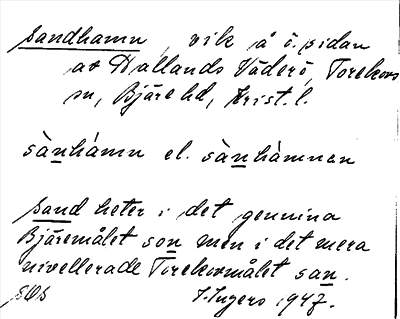 Sandhamn, vik å ö. sidan
av Hallands Väderö, Torekovs
sn, Bjäre hd, Krist. l.
sànhàmn el. sànhàmnen
Sand heter i det genuina
Bjäremålet son men i det mera
nivellerade Torekovmålet san.
I. Ingers 1947.